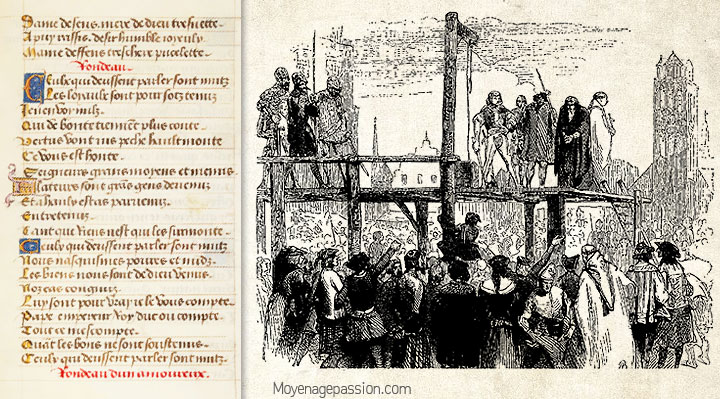 Dame de sens mere de dieu tresnette
humble
treschere pucelette
Rondeau
Ceulx qui deussent parler sont mutz
Les loyaulx sont pour sotz tenuz
Je nen voy nulz
Qui de bonte tiennent plus conte
Vertus vont jus peche hault monte
Ce vous est honte
Seigneurs grans moyens et menus
Flateurs sont grãs gens devenuz
Et a haulx estas parvenuz
Entretenuz
Tant que riens nest qui les surmonte
Ceulx qui deussent parler sont mutz
Nous nasquismes povres et nudz
Les biens nous sont de dieu venus
Noz cas congnuz
Luy sont pour vray ie le vous compte
Pape empereur roy duc ou compte
Tout ce mescompte
Quãt les bons ne sont soustenus
Ceulx qui deussent parler sont mutz
Rondeau dun amoureux.
Moyenagepassion.com